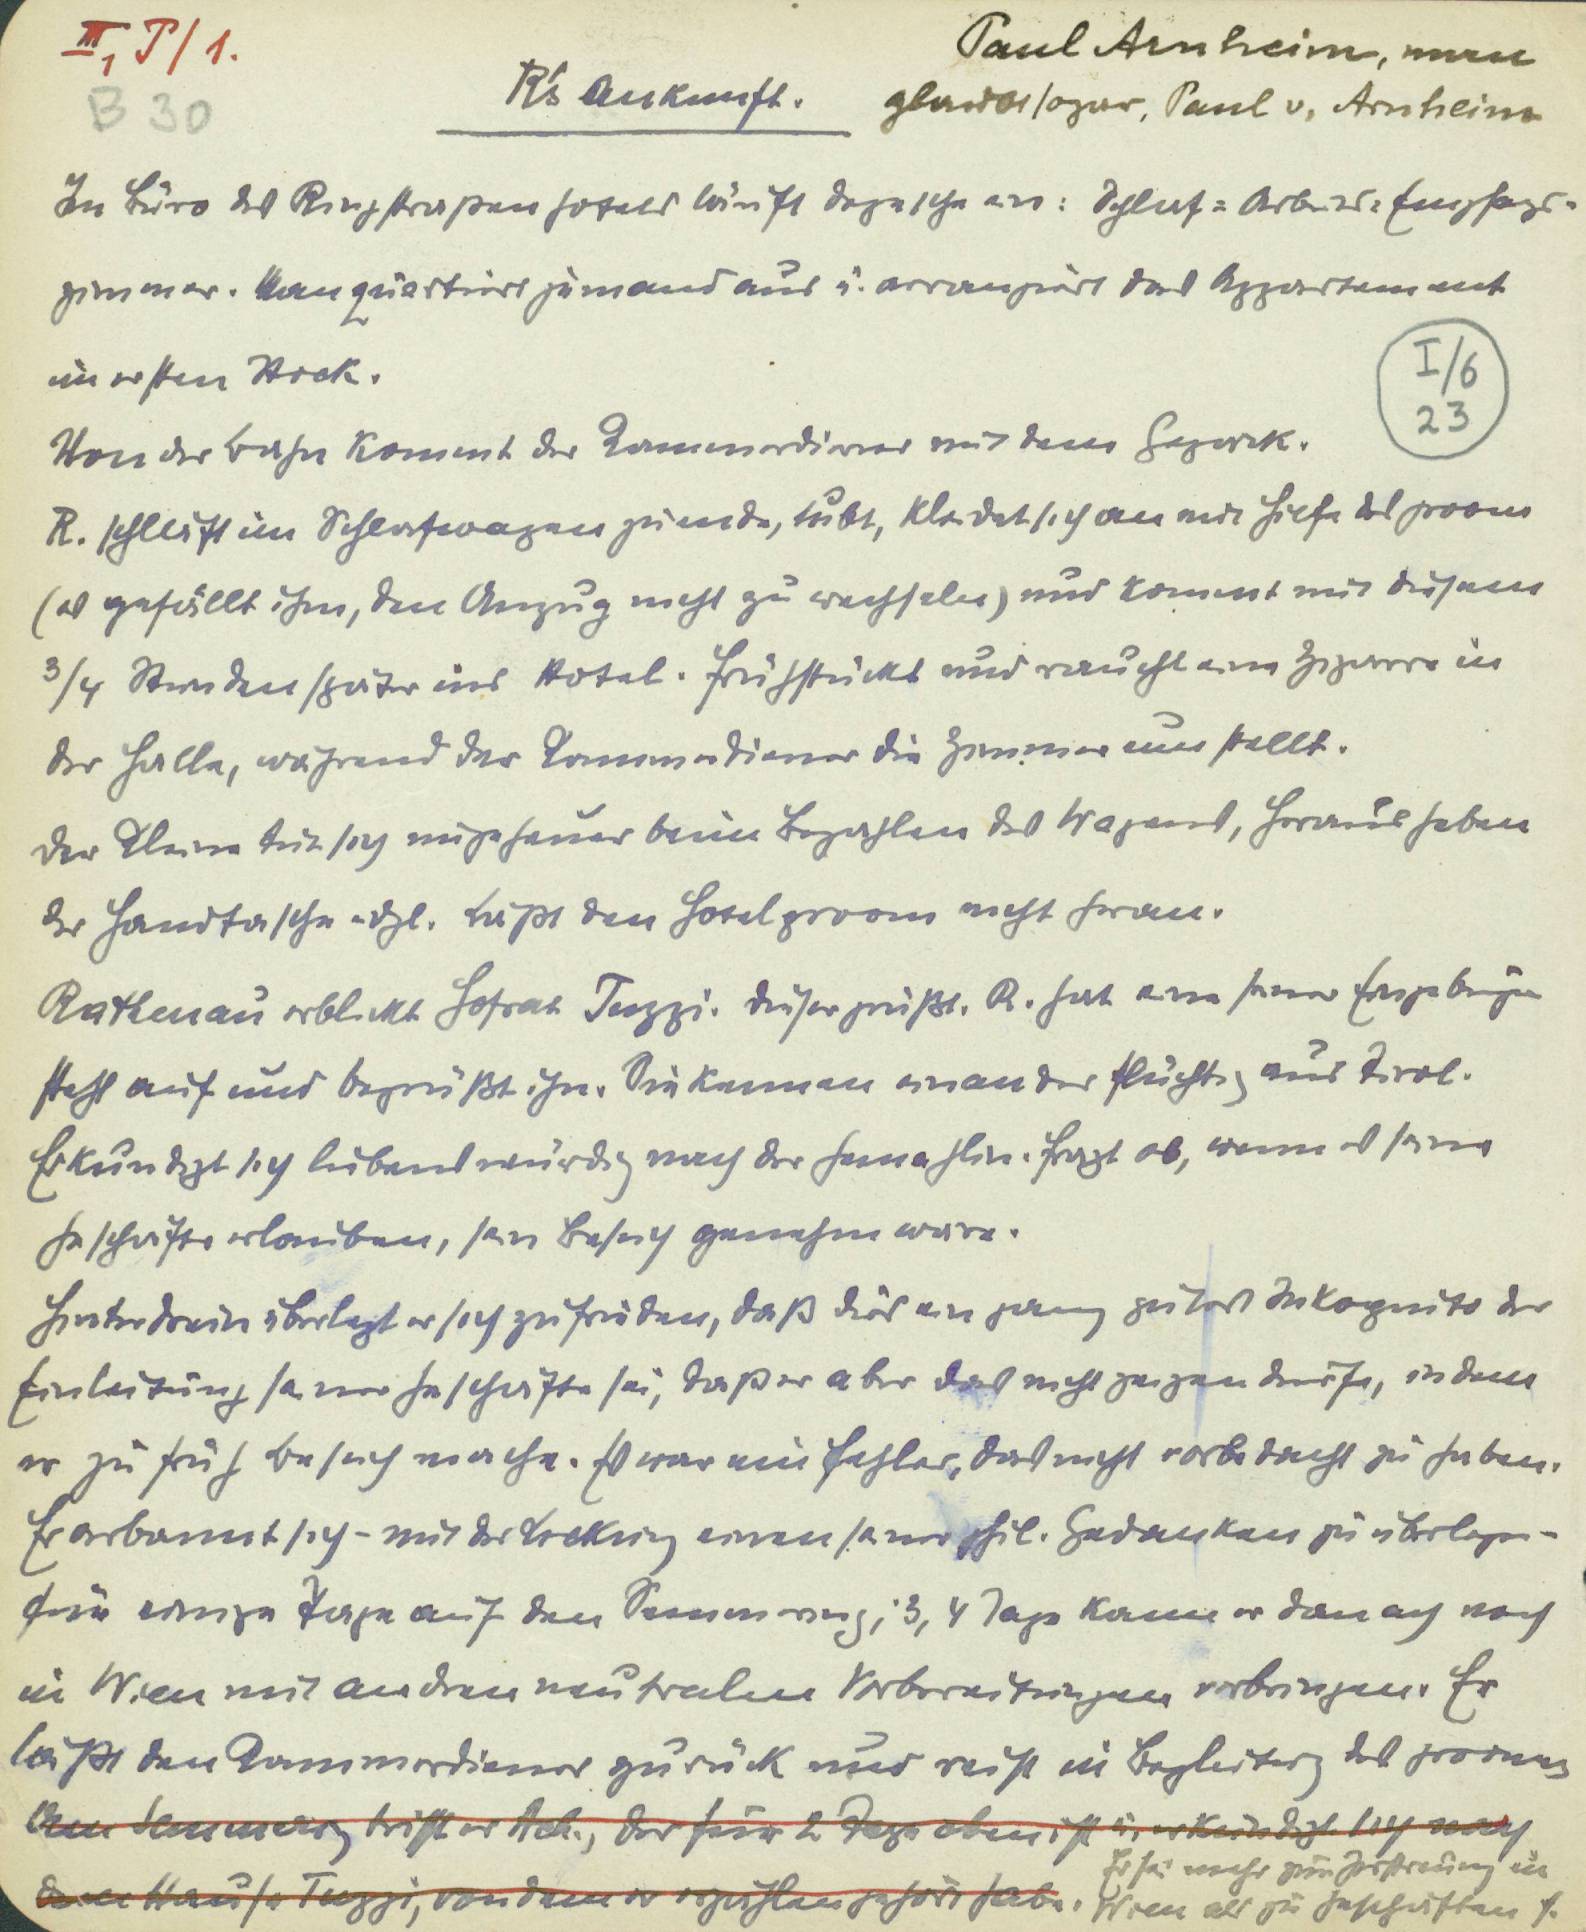 III, T/1.
B 30
R's Ankunft.
Paul Arnheim, man
glaubt sogar, Paul v. Arnheim
Im Büro des Ringstraßenhotels läuft Depesche ein: Schlaf= Arbeits= Empfangs-
zimmer. Man quartiert jemand aus u. arrangiert das Appartement
im ersten Stock.
I/6
23
Von der Bahn kommt der Kammerdiener mit dem Gepäck.
R. schläft im Schlafwagen zuende, tubt, kleidet sich an mit Hilfe des groom
(es gefällt ihm, den Anzug nicht zu wechseln) und kommt mit diesem
3/4 Stunden später ins Hotel. Frühstückt und raucht eine Zigarre in
der Halle, während der Kammerdiener die Zimmer umstellt.
Der Kleine tut sich ungeheuer beim Bezahlen des Wagens, Herausheben
der Handtasche udgl. Läßt den Hotelgroom nicht heran.
Rathenau erblickt Hofrat Tuzzi. Dieser grüßt. R. hat eine seiner Eingebungen
steht auf und begrüßt ihn. Sie kennen einander flüchtig aus Tirol.
Erkundigt sich liebenswürdig nach der Gemahlin. Fragt ob, wenn es seine
Geschäfte erlauben, sein Besuch genehm wäre.
Hinterdrein überlegt er sich zufrieden, daß dies ein ganz gutes Inkognito der
Einleitung seiner Geschäfte sei, daß er aber das nicht zeigen dürfe, indem
er zu früh Besuch mache. Es war ein Fehler, das nicht vorbedacht zu haben.
Er erbarmt sich – mit der Lockung einen seiner phil. Gedanken zu überlegen –
für einige Tage auf den Semmering; 3, 4 Tage kann er danach noch
in Wien mit andren neutralen Vorbereitungen verbringen. Er
läßt den Kammerdiener zurück und reist in Begleitung des grooms
Am Semmering trifft er Ach., der für 2 Tage oben ist u. erkundigt sich nach
dem Hause Tuzzi, von dem er erzählen gehört habe.
Er sei mehr zur Zerstreuung in
Wien als zu Geschäften